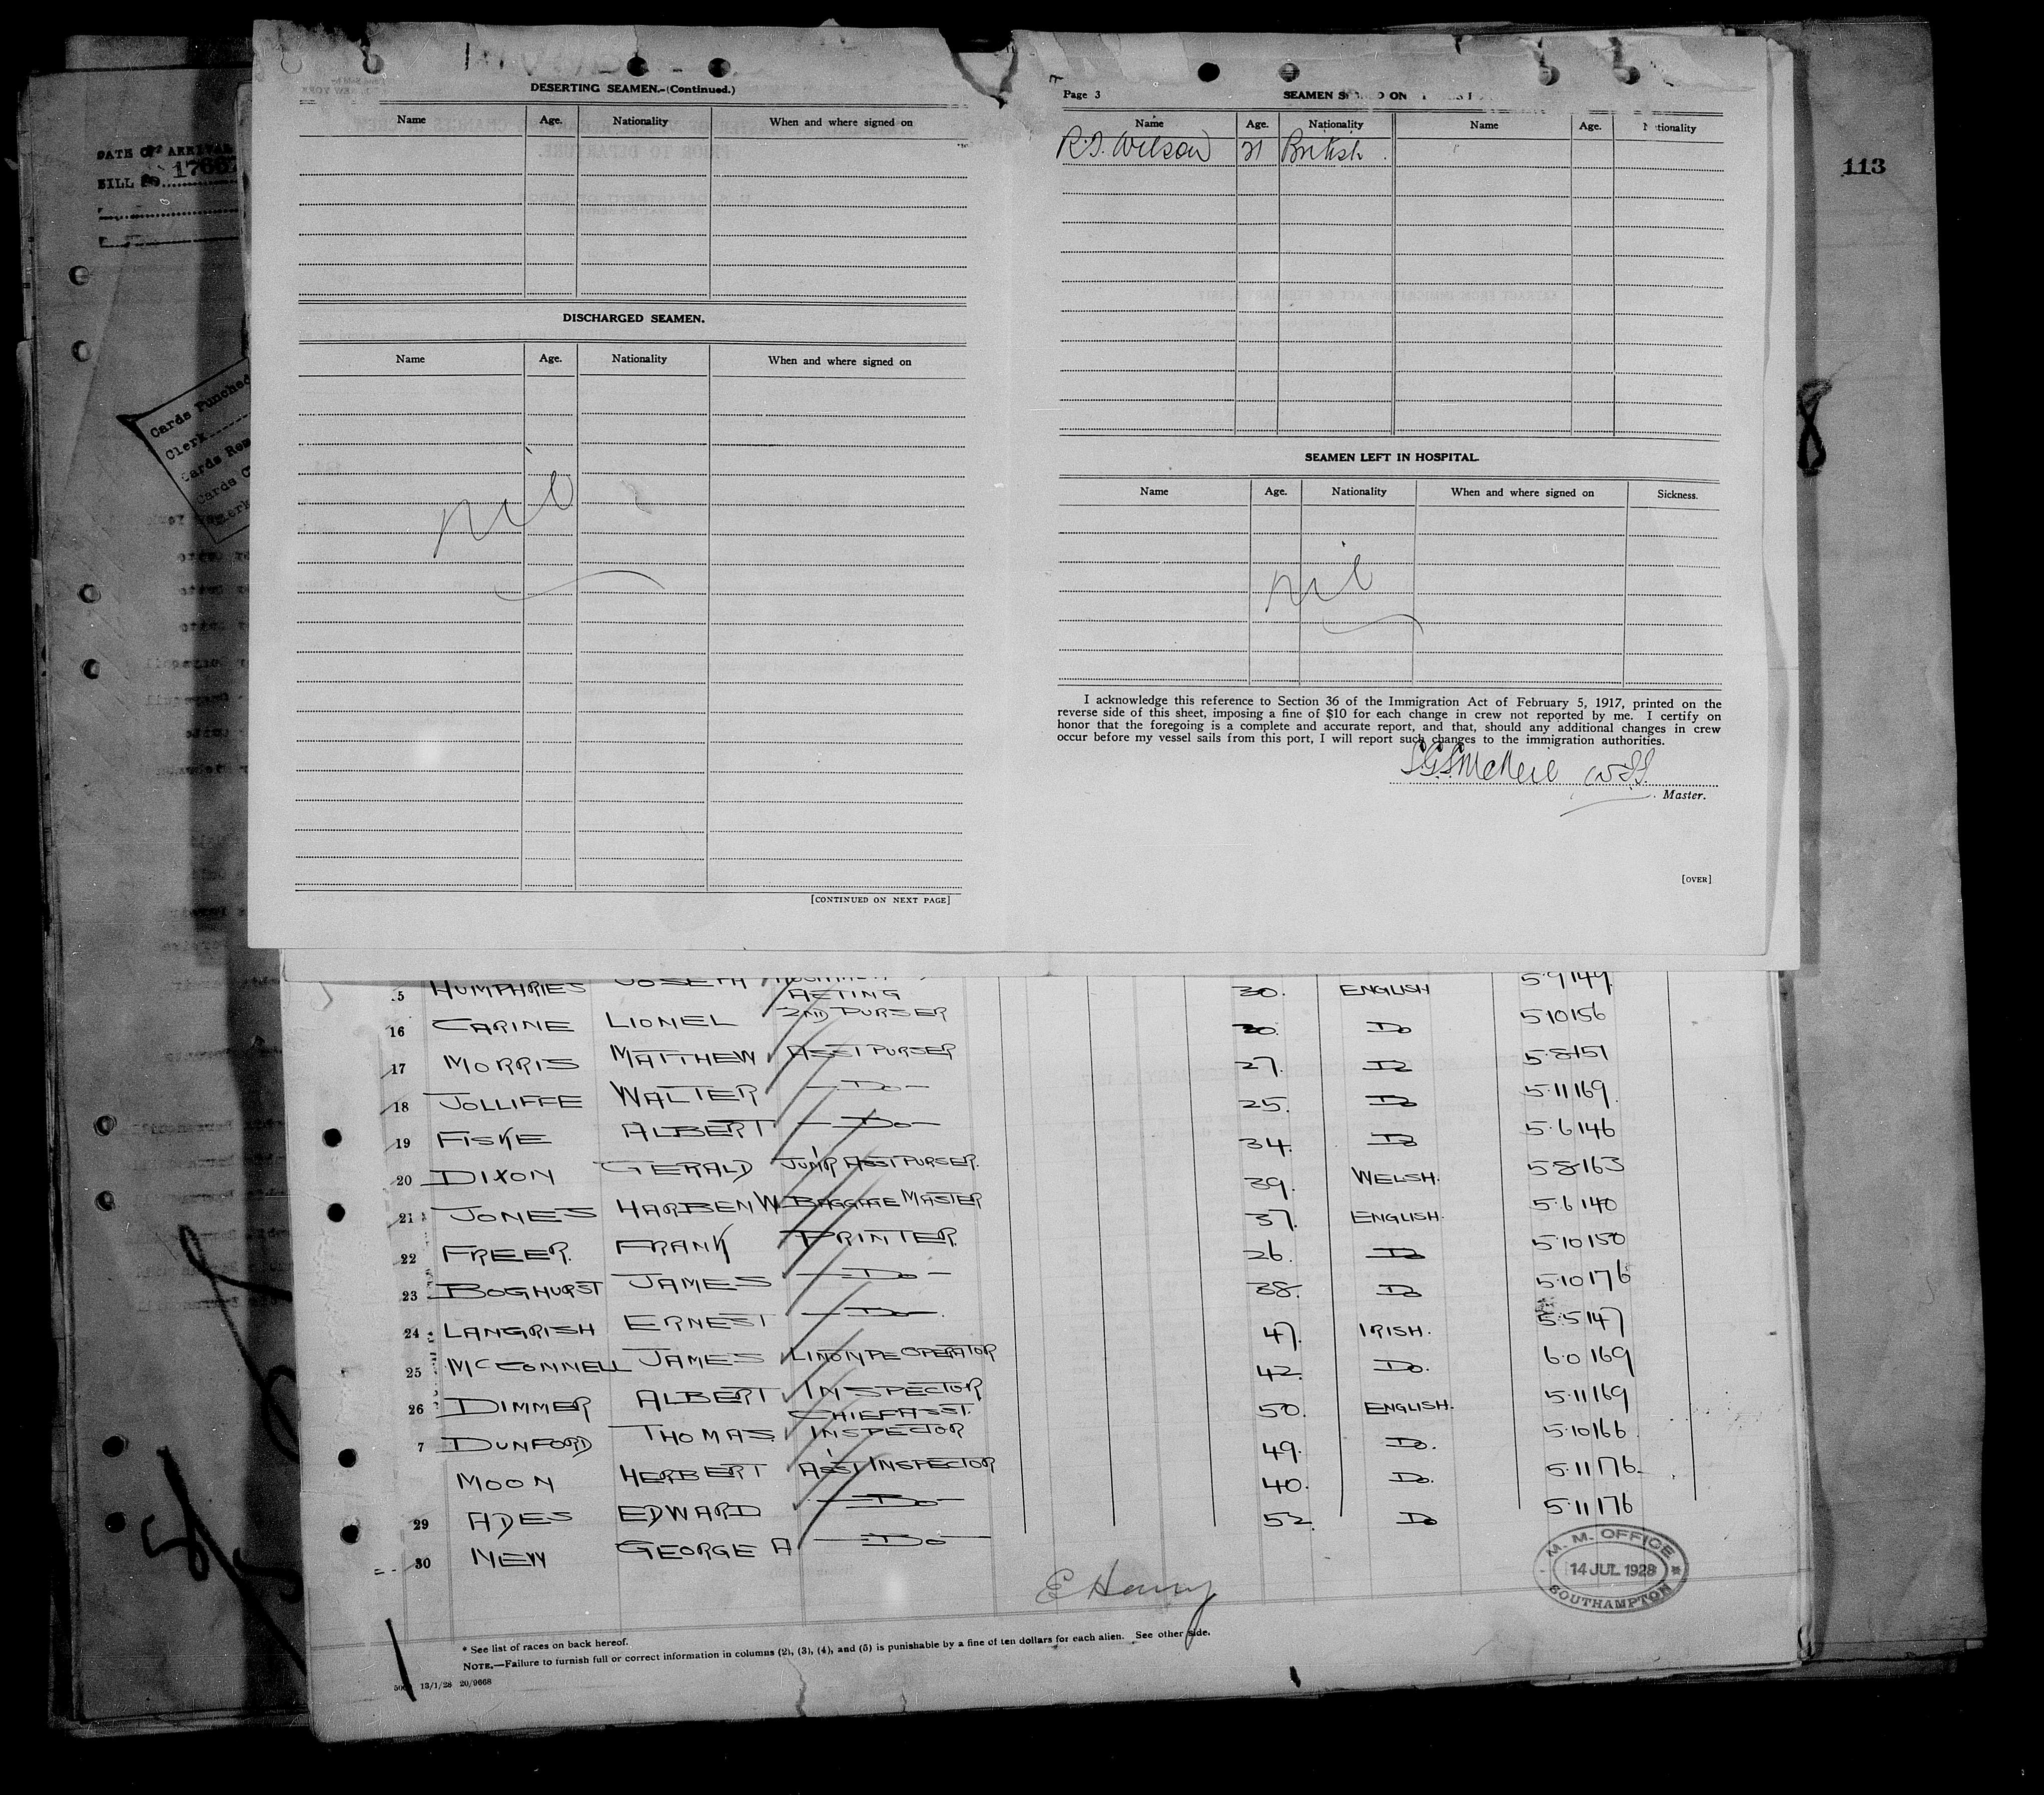 DATE OF ARRIVAL
BILL
113
Cards Punched
Clerk
DESERTING SEAMEN.-(Continued.)
Name Age. Nationality When and where signed on
DISCHARGED SEAMEN.
Name Age. Nationality When and where signed on
nil
[CONTINUED ON NEXT PAGE]
Page 3
SEAMEN ON
Name Age. Nationality Name Age.
Wilson 21 British
SEAMEN LEFT IN HOSPITAL.
Name Age. Nationality When and where signed on Sickness.
nil
I acknowledge this reference to Section 36 of the Immigration Act of February 5, 1917, printed on the
reverse side of this sheet, imposing a fine of $10 for each change in crew not reported by me. I certify on
honor that the foregoing is a complete and accurate report, and that, should any additional changes in crew
occur before my vessel sails from this port, I will report such changes to the immigration authorities.
Master.
[OVER]
5 HUMPHRIES JOSEPH 30. ENGLISH 5·9 149
16 CARINE LIONEL ACTING 2ND PURSER Do 5 10 156
17 MORRIS MATTHEW ASST PURSER 27. Do 5·8 151
18 JOLLIFFE WALTER — Do — 25. Do 5·11 169
19 FISKE ALBERT — Do — 34. Do 5·6 146
20 DIXON GERALD JUNR ASST PURSER. 39. WELSH. 5 8 163
21 JONES HARBEN W BAGGAGE MASTER 37. ENGLISH. 5·6 140
22 FREER. FRANK PRINTER. 26. Do 5·10 150
23 BOGHURST JAMES — Do — 38. Do 5·10 176
24 LANGRISH ERNEST — Do — 47. IRISH. 5·5 147
25 McCONNELL JAMES LINOTYPE OPERATOR 42. Do. 6·0 169
26 DIMMER ALBERT INSPECTOR 50. ENGLISH. 5·11 169
7 DUNFORD THOMAS. CHIEF ASST. INSPECTOR 49. Do. 5·10 166
MOON HERBERT ASST INSPECTOR 40. Do. 5·11 176
29 ADES EDWARD — Do — 52. Do 5·11 176
30 NEW GEORGE A — Do —
M. M. OFFICE
14 JUL 1928
SOUTHAMPTON
* See list of races on back hereof.
NOTE.—Failure to furnish full or correct information in columns (2), (3), (4), and (5) is punishable by a fine of ten dollars for each alien. See other side.
13/1/28 20/9668